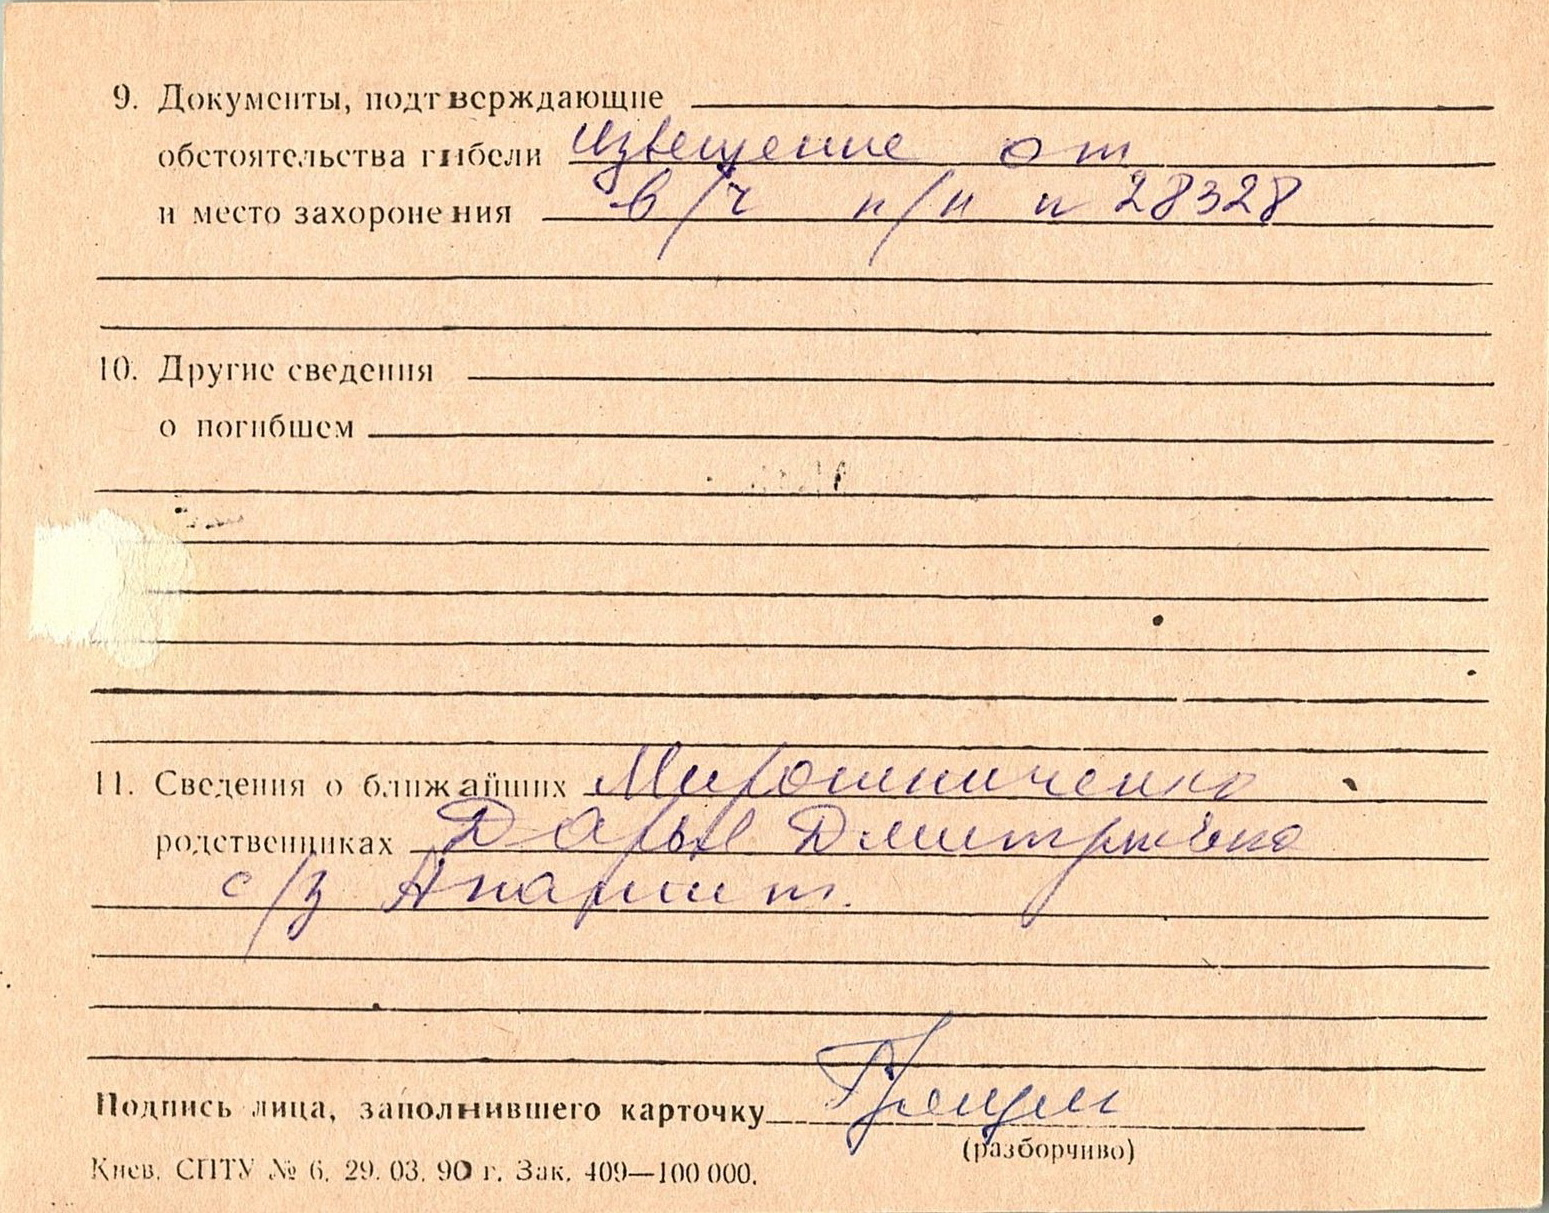 9. Документы, подтверждающие
обстоятельства гибели извещение от
и место захоронения в/ч п/п п 28328
10. Другие сведения
о погибшем
11. Сведения о ближайших Мирошниченко
родственниках Дарья Дмитриевна
с/з Апатит.
Подпись лица, заполнившего карточку
(разборчиво)
Киев. СПТУ № 6. 29. 03. 90 г. Зак. 409—100 000.